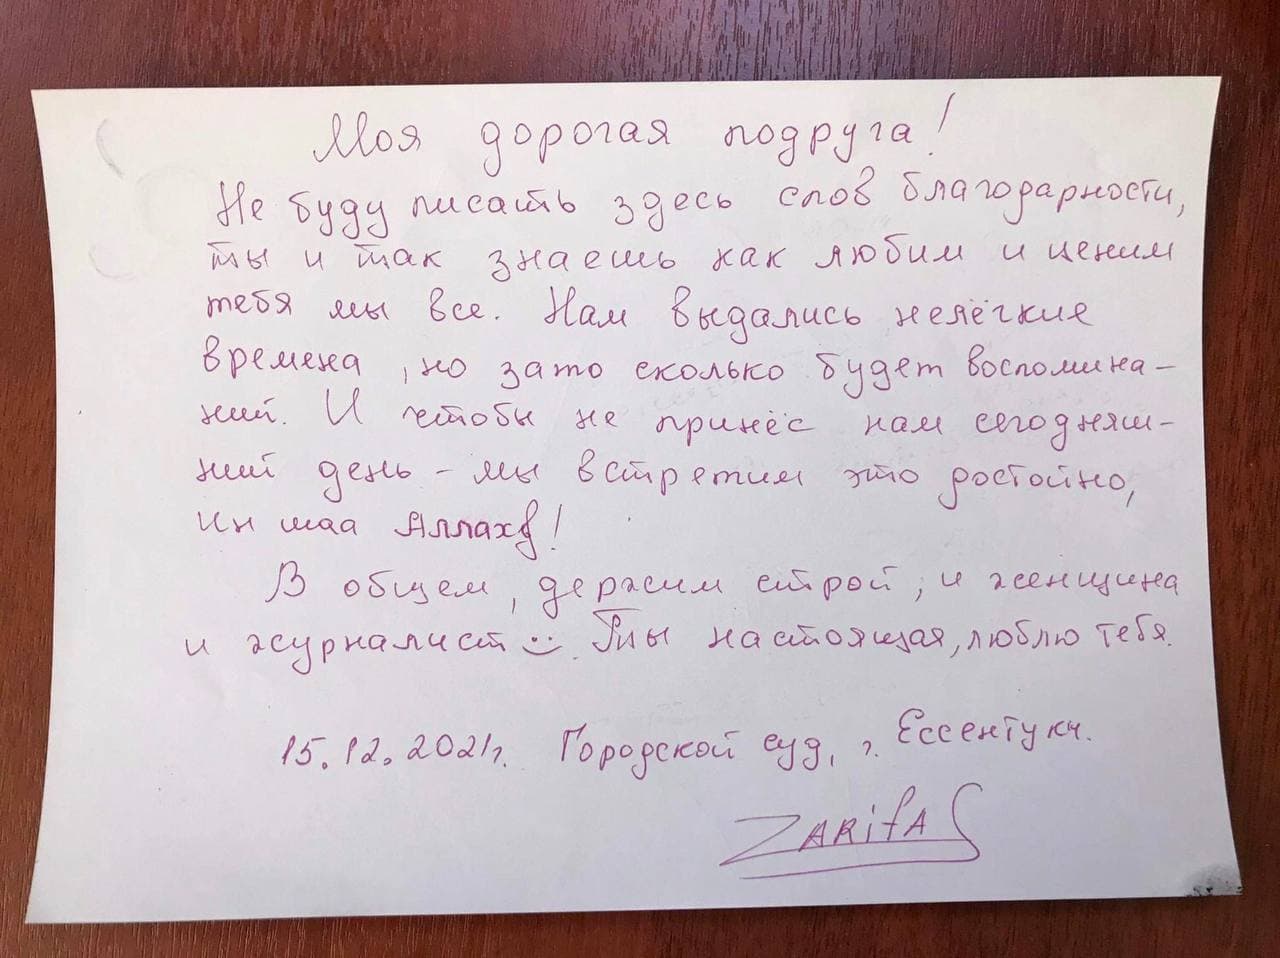 Моя дорогая подруга!
Не буду писать здесь слов благодарности,
ты и так знаешь как любим и ценим
тебя мы все. Нам выдались нелёгкие
времена, но зато сколько будет воспомина-
ний. И чтобы не принёс нам сегодняш-
ний день - мы встретим это достойно,
Ин шаа Аллахl!
В общем, держим строй, и женщина
и журналист :). Ты настоящая, люблю тебя.
15.12.2021г. Городской суд, г. Ессентуки.
ZARifA S